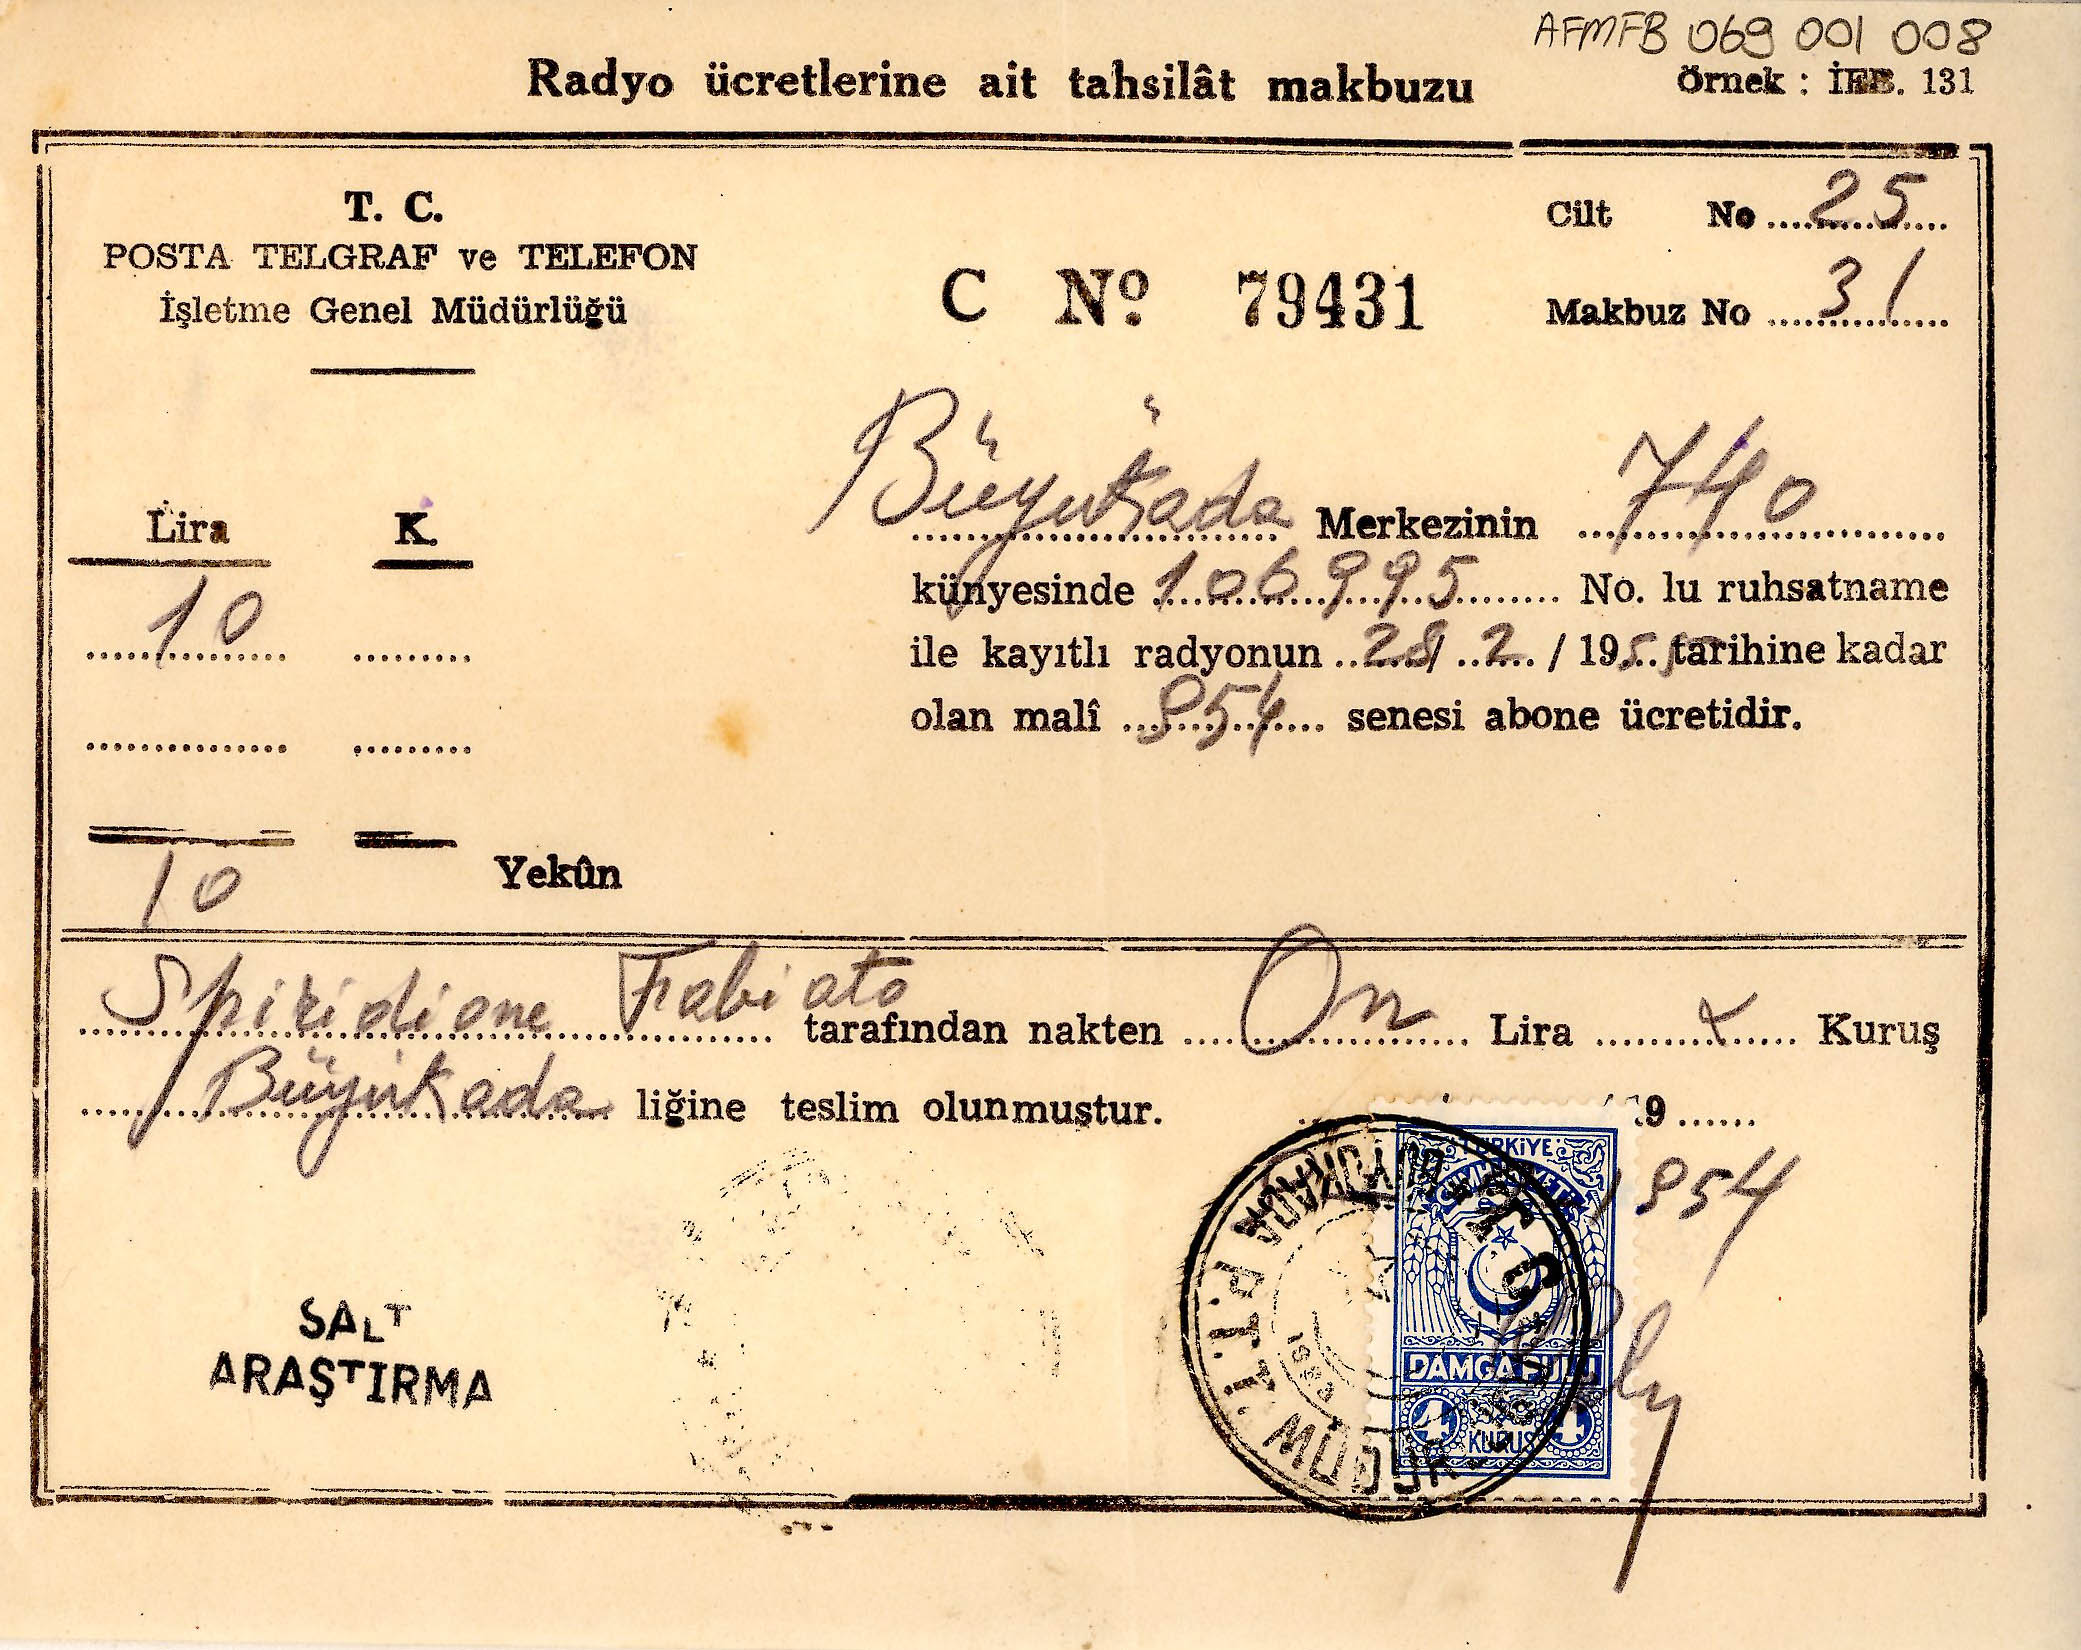 AFMFB 069 001 008
Radyo ücretlerine ait tahsilât makbuzu
Örnek : İEB. 131
T. C.
POSTA TELGRAF ve TELEFON
İşletme Genel Müdürlüğü
C No. 79431
Cilt No 25
Makbuz No 31
Büyükada Merkezinin 740
künyesinde 106995 No. lu ruhsatname
ile kayıtlı radyonun 28/ 2 / 1955 tarihine kadar
olan malî 954 senesi abone ücretidir.
Lira K.
10
10 Yekûn
Spiridione Fabiato tarafından nakten On Lira Kuruş
Büyükada liğine teslim olunmuştur. 19
1954
TÜRKİYE
CUMHURİYETİ
DAMGA PULU
4 KURUŞ 4
T.C. BÜYÜKADA P.T.T. MÜDÜR
SALT
ARAŞTIRMA